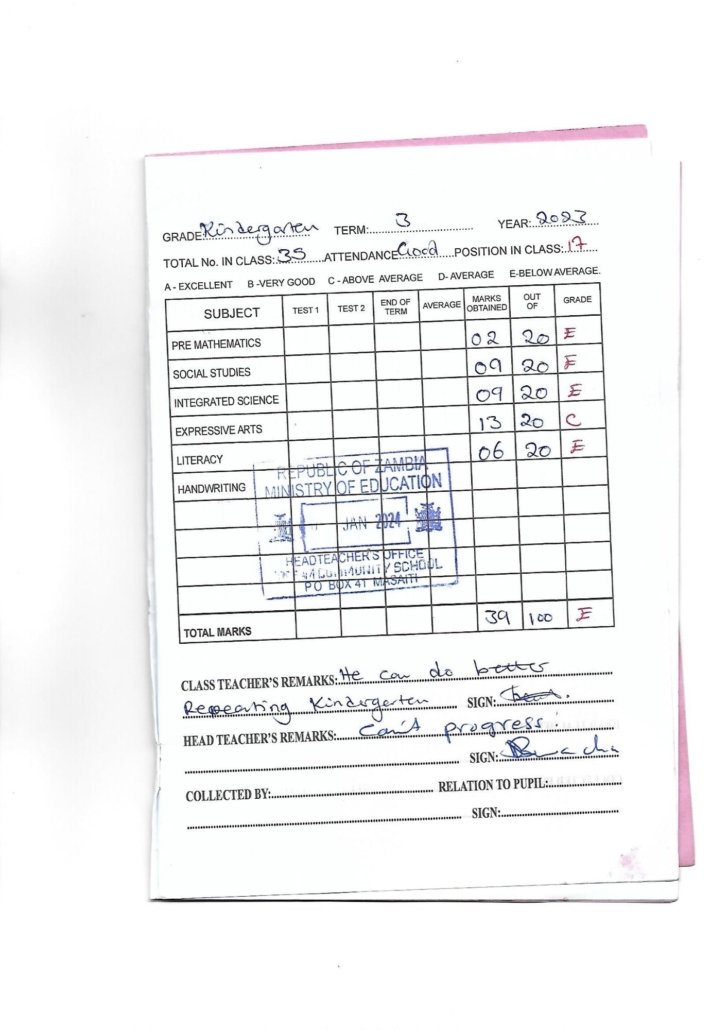 GRADE: Kindergarten TERM: 3 YEAR: 2023
TOTAL No. IN CLASS: 35 ATTENDANCE Good POSITION IN CLASS: 17
A - EXCELLENT B -VERY GOOD C - ABOVE AVERAGE D- AVERAGE E-BELOW AVERAGE.
SUBJECT TEST 1 TEST 2 END OF TERM AVERAGE MARKS OBTAINED OUT OF GRADE
PRE MATHEMATICS 02 20 E
SOCIAL STUDIES 09 20 E
INTEGRATED SCIENCE 09 20 E
EXPRESSIVE ARTS 13 20 C
LITERACY 06 20 E
HANDWRITING
REPUBLIC OF ZAMBIA
MINISTRY OF EDUCATION
JAN 2024
HEADTEACHER'S OFFICE
COMMUNITY SCHOOL
P O BOX 41 MASAITI
TOTAL MARKS 39 100 E
CLASS TEACHER'S REMARKS: He can do better
Repeating Kindergarten SIGN:
HEAD TEACHER'S REMARKS: Can't progress.
SIGN:
COLLECTED BY: RELATION TO PUPIL:
SIGN: